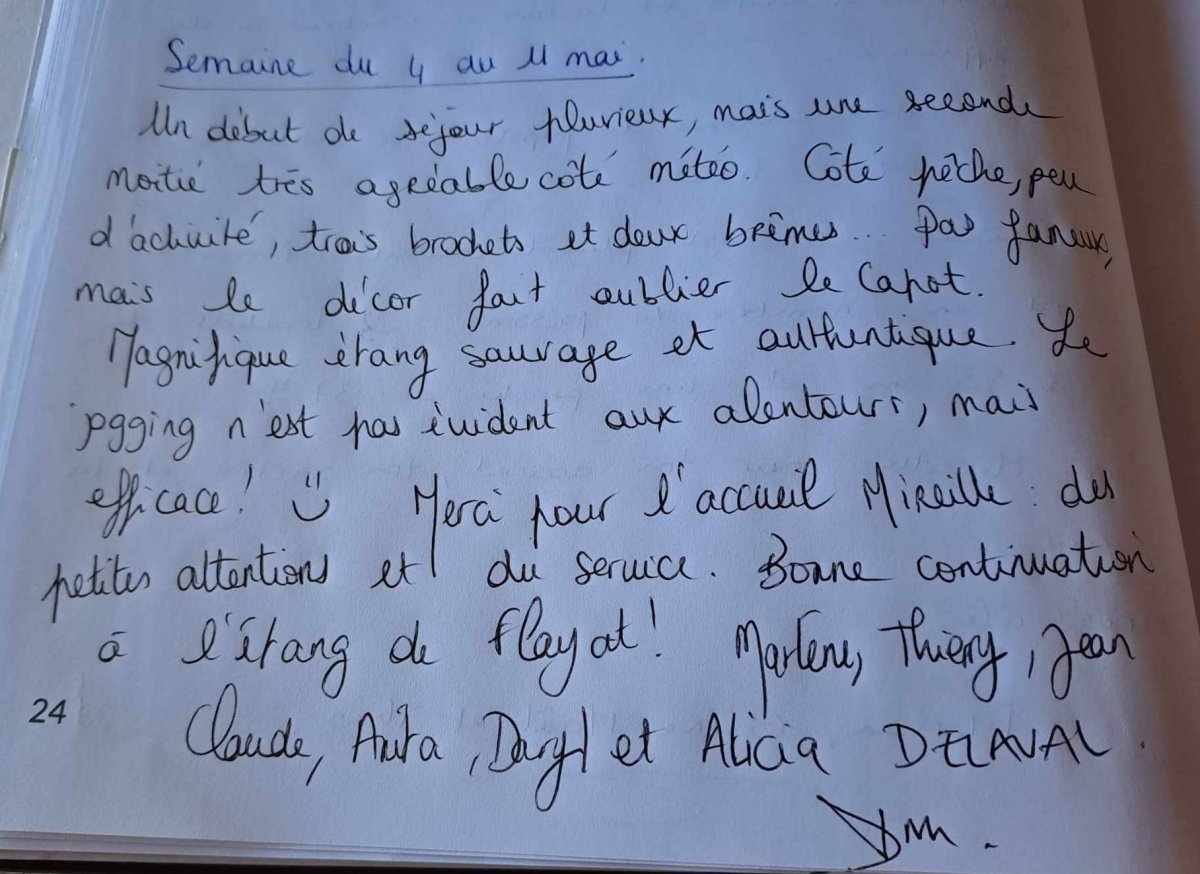 Semaine du 4 au 11 mai.
Un début de séjour pluvieux, mais une seconde
moitié très agréable côté météo. Côté pêche, peu
d'activité, trois brochets et deux brêmes... Pas fameux,
mais le décor fait oublier le Capot.
Magnifique étang sauvage et authentique. Le
jogging n'est pas évident aux alentours, mais
efficace! Merci pour l'accueil Mireille : des
petites attentions et du service. Bonne continuation
à l'étang de Flayat! Marlène, Thierry, Jean
24
Claude, Anita, Daryl et Alicia DELAVAL.